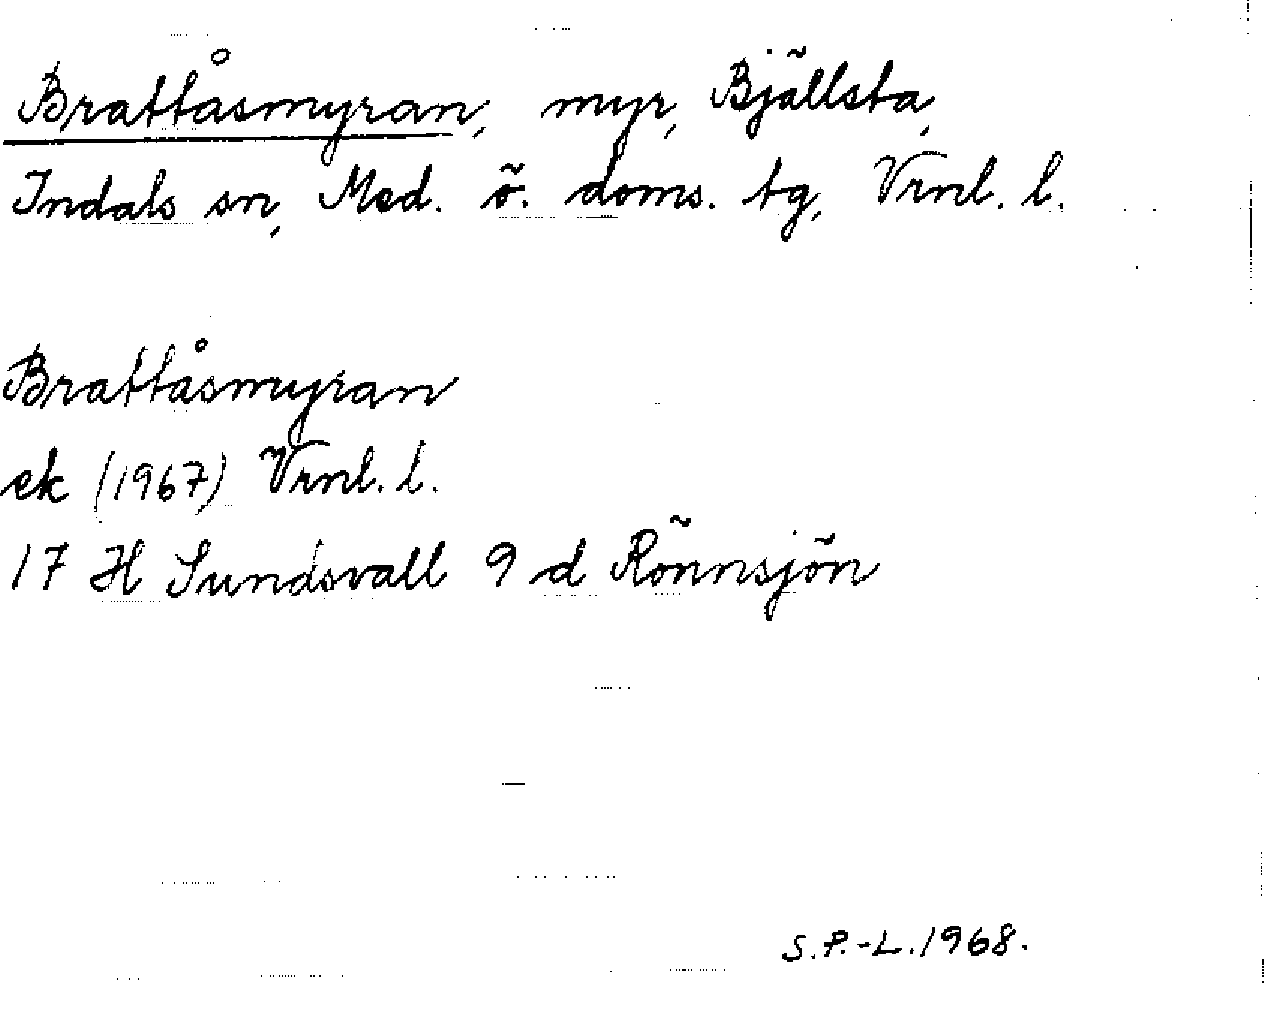 Brattåsmyran, myr, Bjällsta,
Indals sn, Med. ö. doms. tg, Vrnl. l.
Brattåsmyran
ek (1967) Vrnl. l.
17 H Sundsvall 9 d Rönnsjön
S.P.-L. 1968.